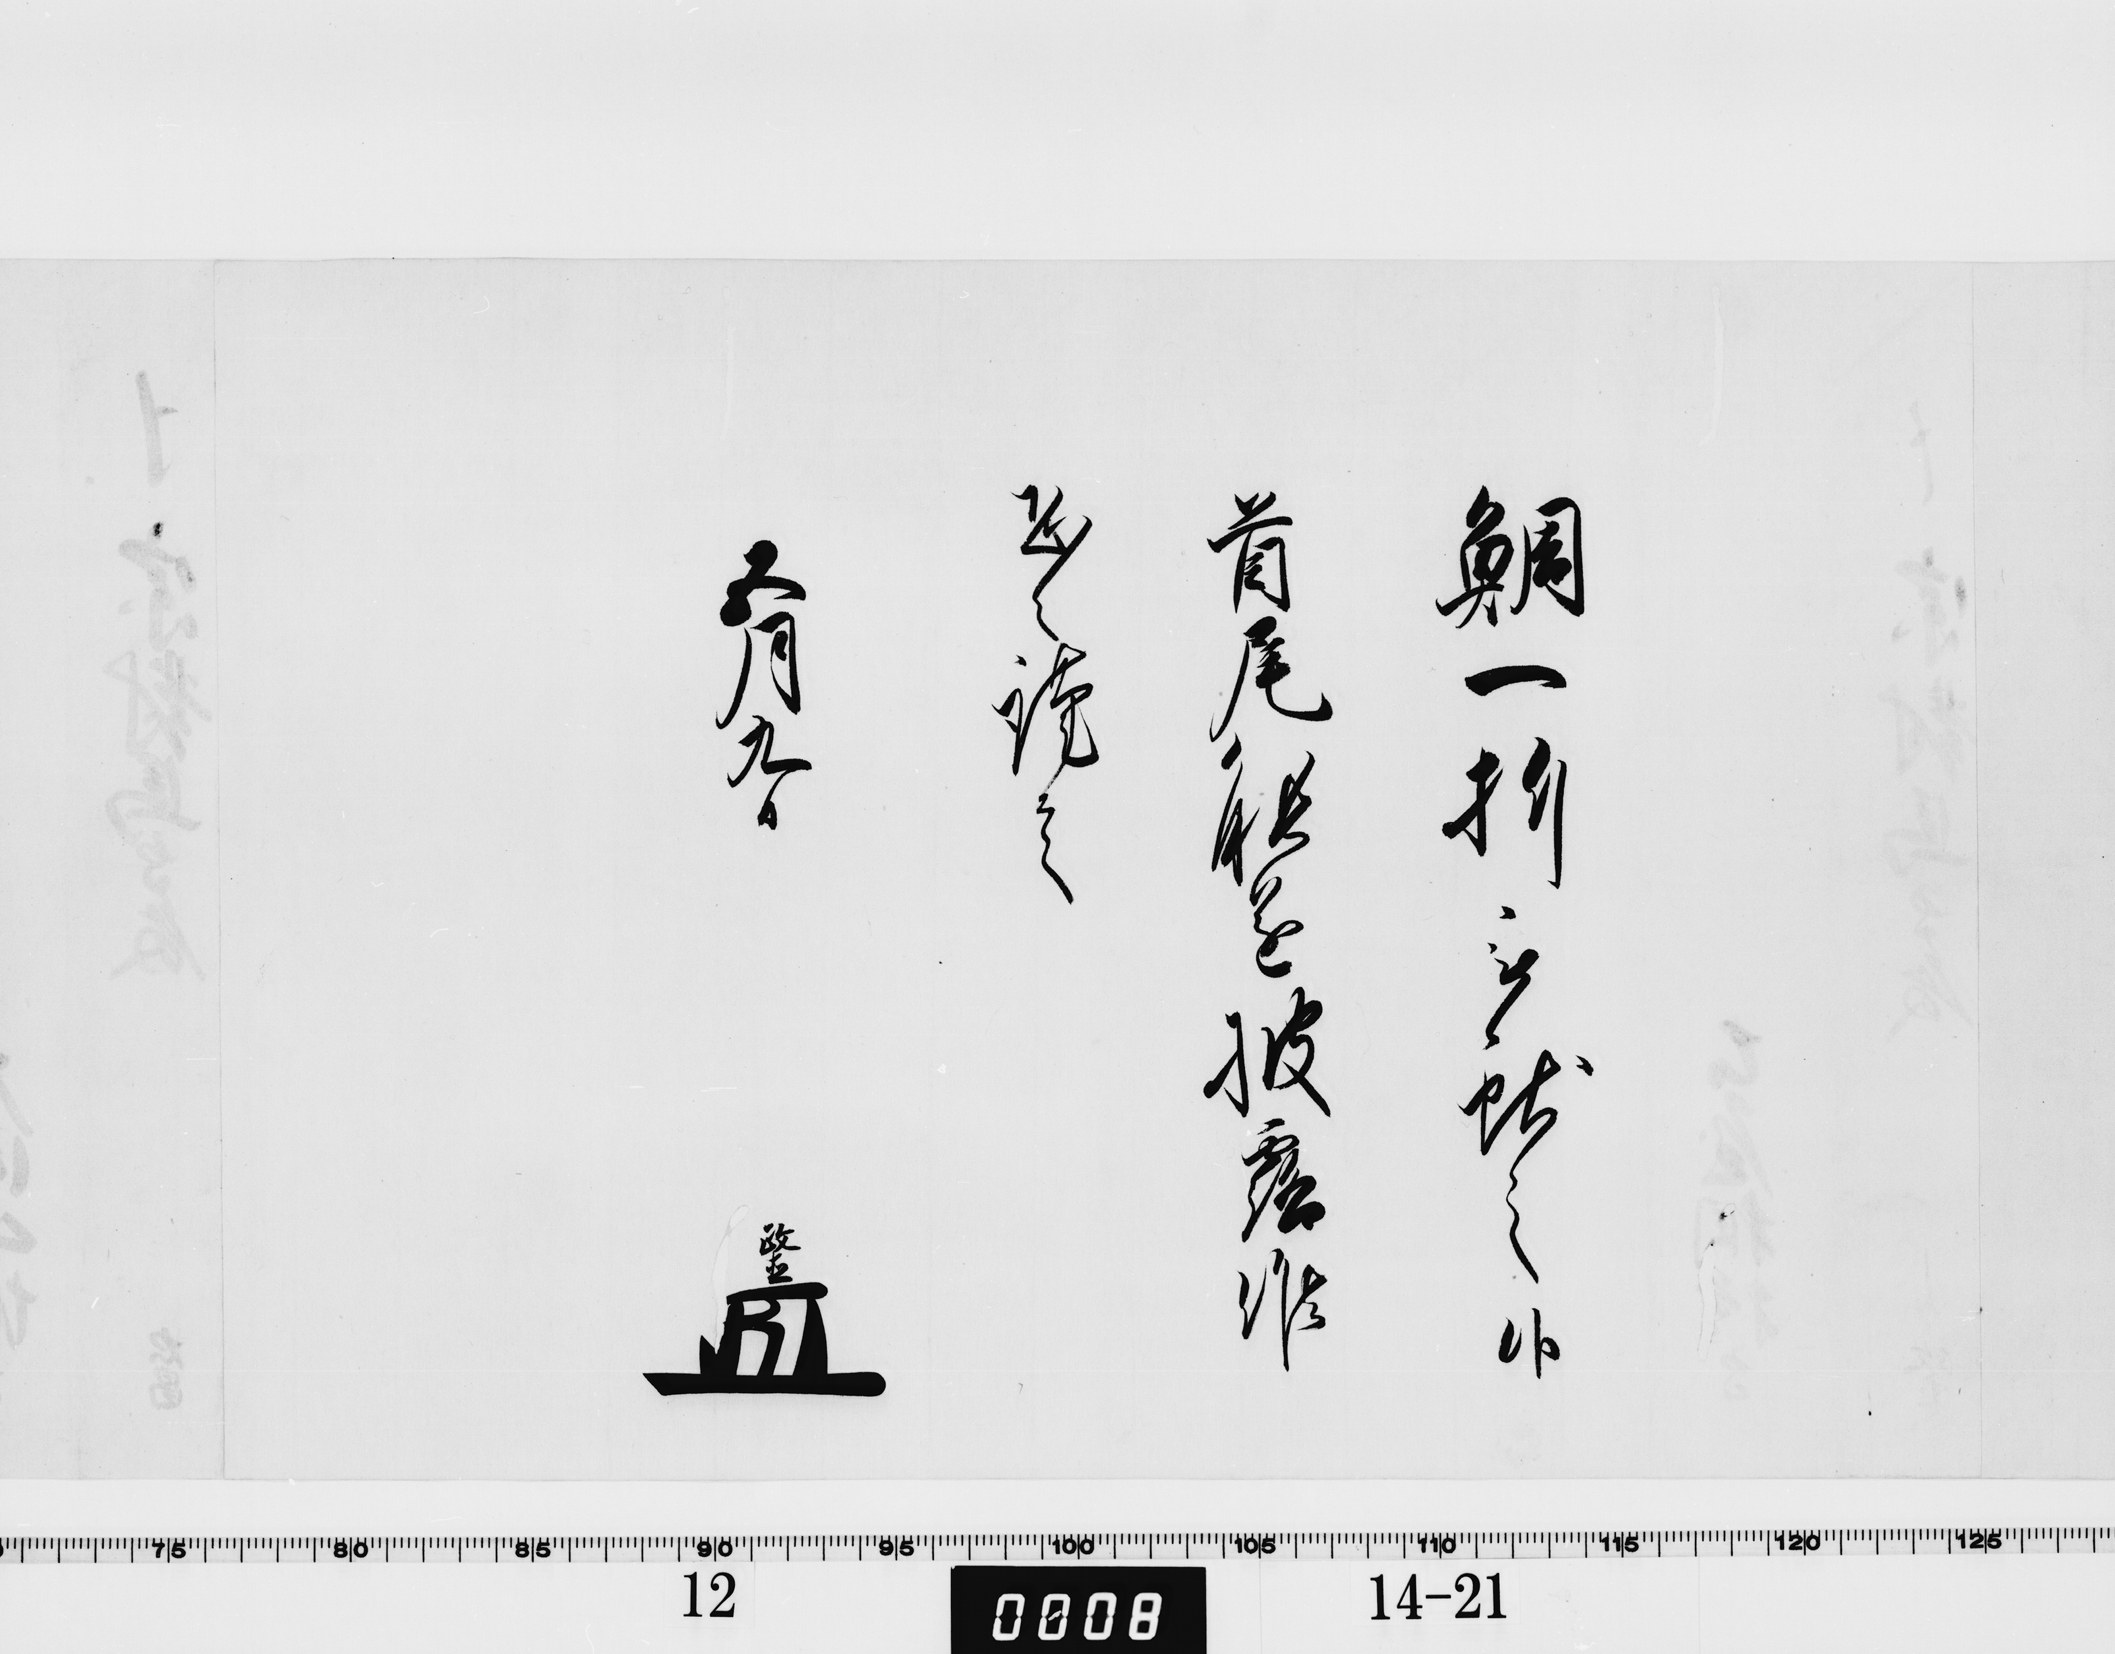 鯛一折被献之候
首尾能遂披露候
恐々謹言
五月九日
75 80 85 90 95 100 105 110 115 120 125
12 0008 14-21